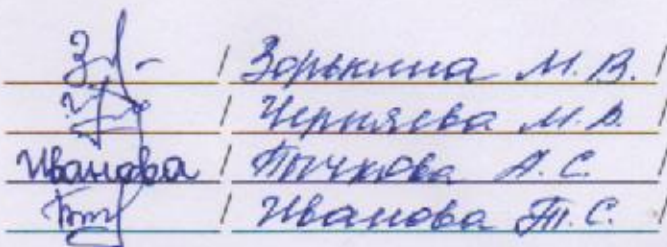 / Зорькина М. В. /
/ Черняева М. В. /
Иванова / Тычкова А. С. /
/ Иванова Т. С. /